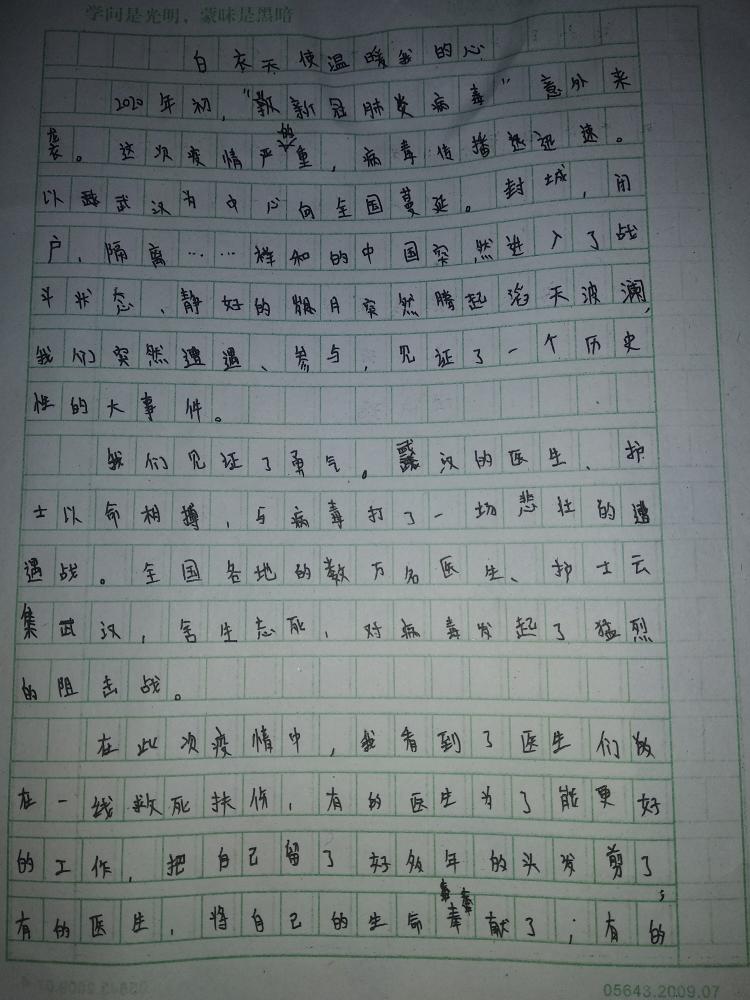 学问是光明，蒙昧是黑暗
白衣天使温暖我的心
2020年初，“新冠肺炎病毒”意外来
袭。这次疫情严重的，病毒传播迅速。
以武汉为中心向全国蔓延。封城，闭
户，隔离……祥和的中国突然进入了战
斗状态，静好的岁月突然腾起滔天波澜，
我们突然遭遇、参与，见证了一个历史
性的大事件。
我们见证了勇气。武汉的医生、护
士以命相搏，与病毒打了一场悲壮的遭
遇战。全国各地的数万名医生、护士云
集武汉，舍生忘死，对病毒发起了猛烈
的阻击战。
在此次疫情中，我看到了医生们放
在一线救死扶伤，有的医生为了能更好
的工作，把自己留了好多年的头发剪了；
有的医生，将自己的生命奉献了；有的
05643.2009.07